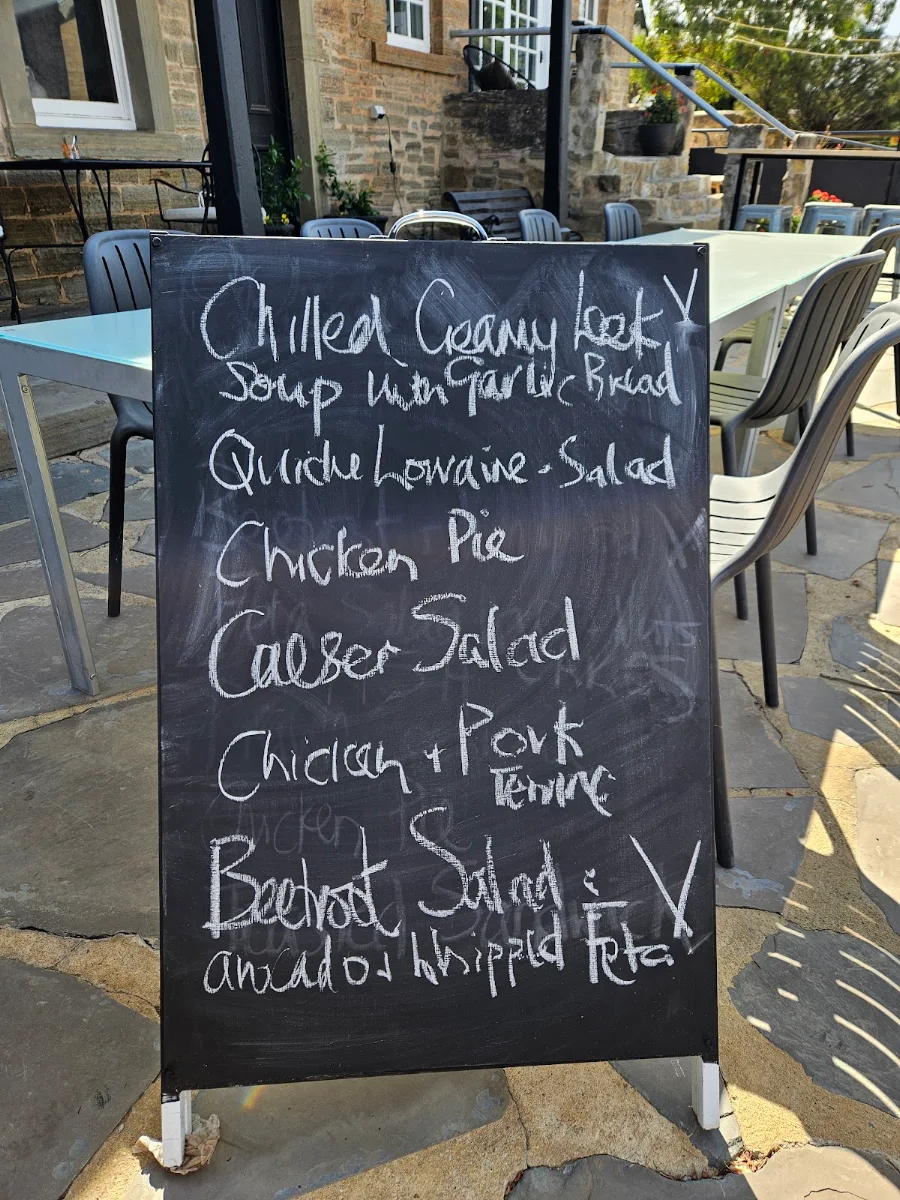 Chilled Creamy Leek V
Soup with Garlic Bread
Quiche Lorraine - Salad
Chicken Pie
Caeser Salad
Chicken + Pork
Terrine
Beetroot Salad & V
avocado + Whipped Feta